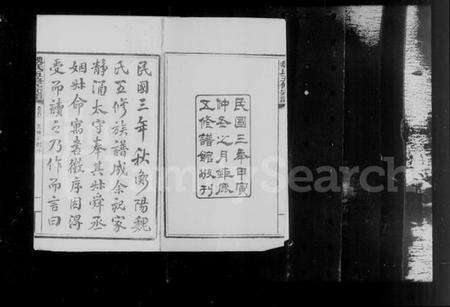 民國三年甲寅
仲冬之月鉅鹿
五修譜館敬刊
民國三年秋衡陽魏
氏五修族譜成余記家
靜涵太守奉其舜丞
命寓書徵序因得
受而讀之乃作而言曰
FamilySearch